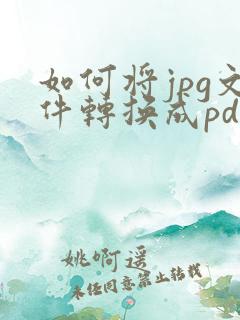 如何将jpg文
件轉换成pd
姚啊遥
未经同意禁止转载